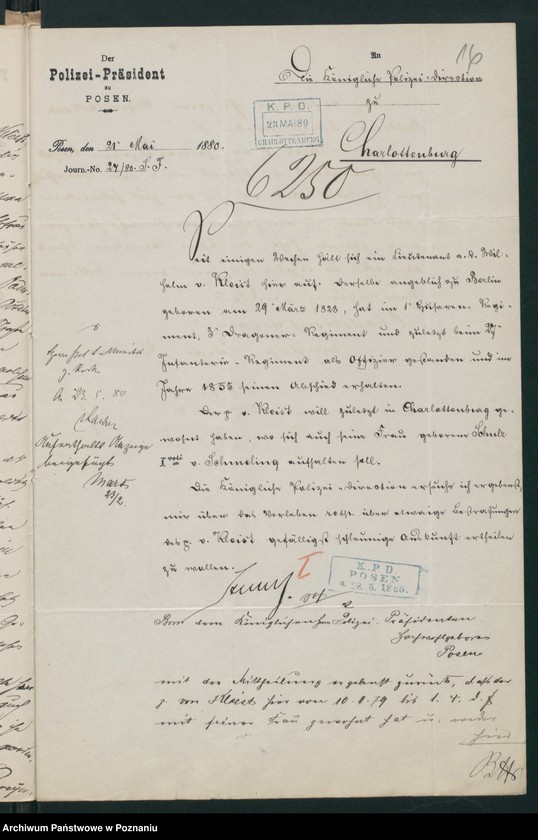 16
Der
Polizei-Präsident
zu
POSEN.
Posen, den 21 Mai 1880.
Journ.-No. 27/80. S. J.
An
Die Königliche Polizei-Direction
zu
Charlottenburg
K. P. D.
23 MAI 80
CHARLOTTENBURG
6250
Seit einigen Wochen hält sich ein Lieutenant a. D. Wil-
helm v. Kleist hier auf. Derselbe angeblich zu Berlin
geboren am 29 März 1828, hat im 1 Husaren-Regi-
ment, 3 Dragoner-Regiment und zuletzt beim
Infanterie-Regiment als Offizier gestanden und im
Jahre 1855 seinen Abschied erhalten.
Der p. v. Kleist will zuletzt in Charlottenburg ge-
wohnt haben, wo sich auch seine Frau geborene
v. Schmeling aufhalten soll.
Die Königliche Polizei-Direction ersuche ich ergebenst,
mir über das Vorleben resp. über etwaige Bestrafungen
des p. v. Kleist gefälligst schleunige Auskunft ertheilen
zu wollen.
23. 5. 80
Aufenthalts Anzeige
beigefügt
I
K. P. D.
POSEN
5. 1880.
dem Königlichen Polizei-Präsidenten
Hochwohlgeboren
Posen
mit der Mittheilung ergebenst zurück, daß der
p. von Kleist hier von 10 79 bis 1. 4. d. J
mit seiner Frau gewohnt hat u. weder
Archiwum Państwowe w Poznaniu